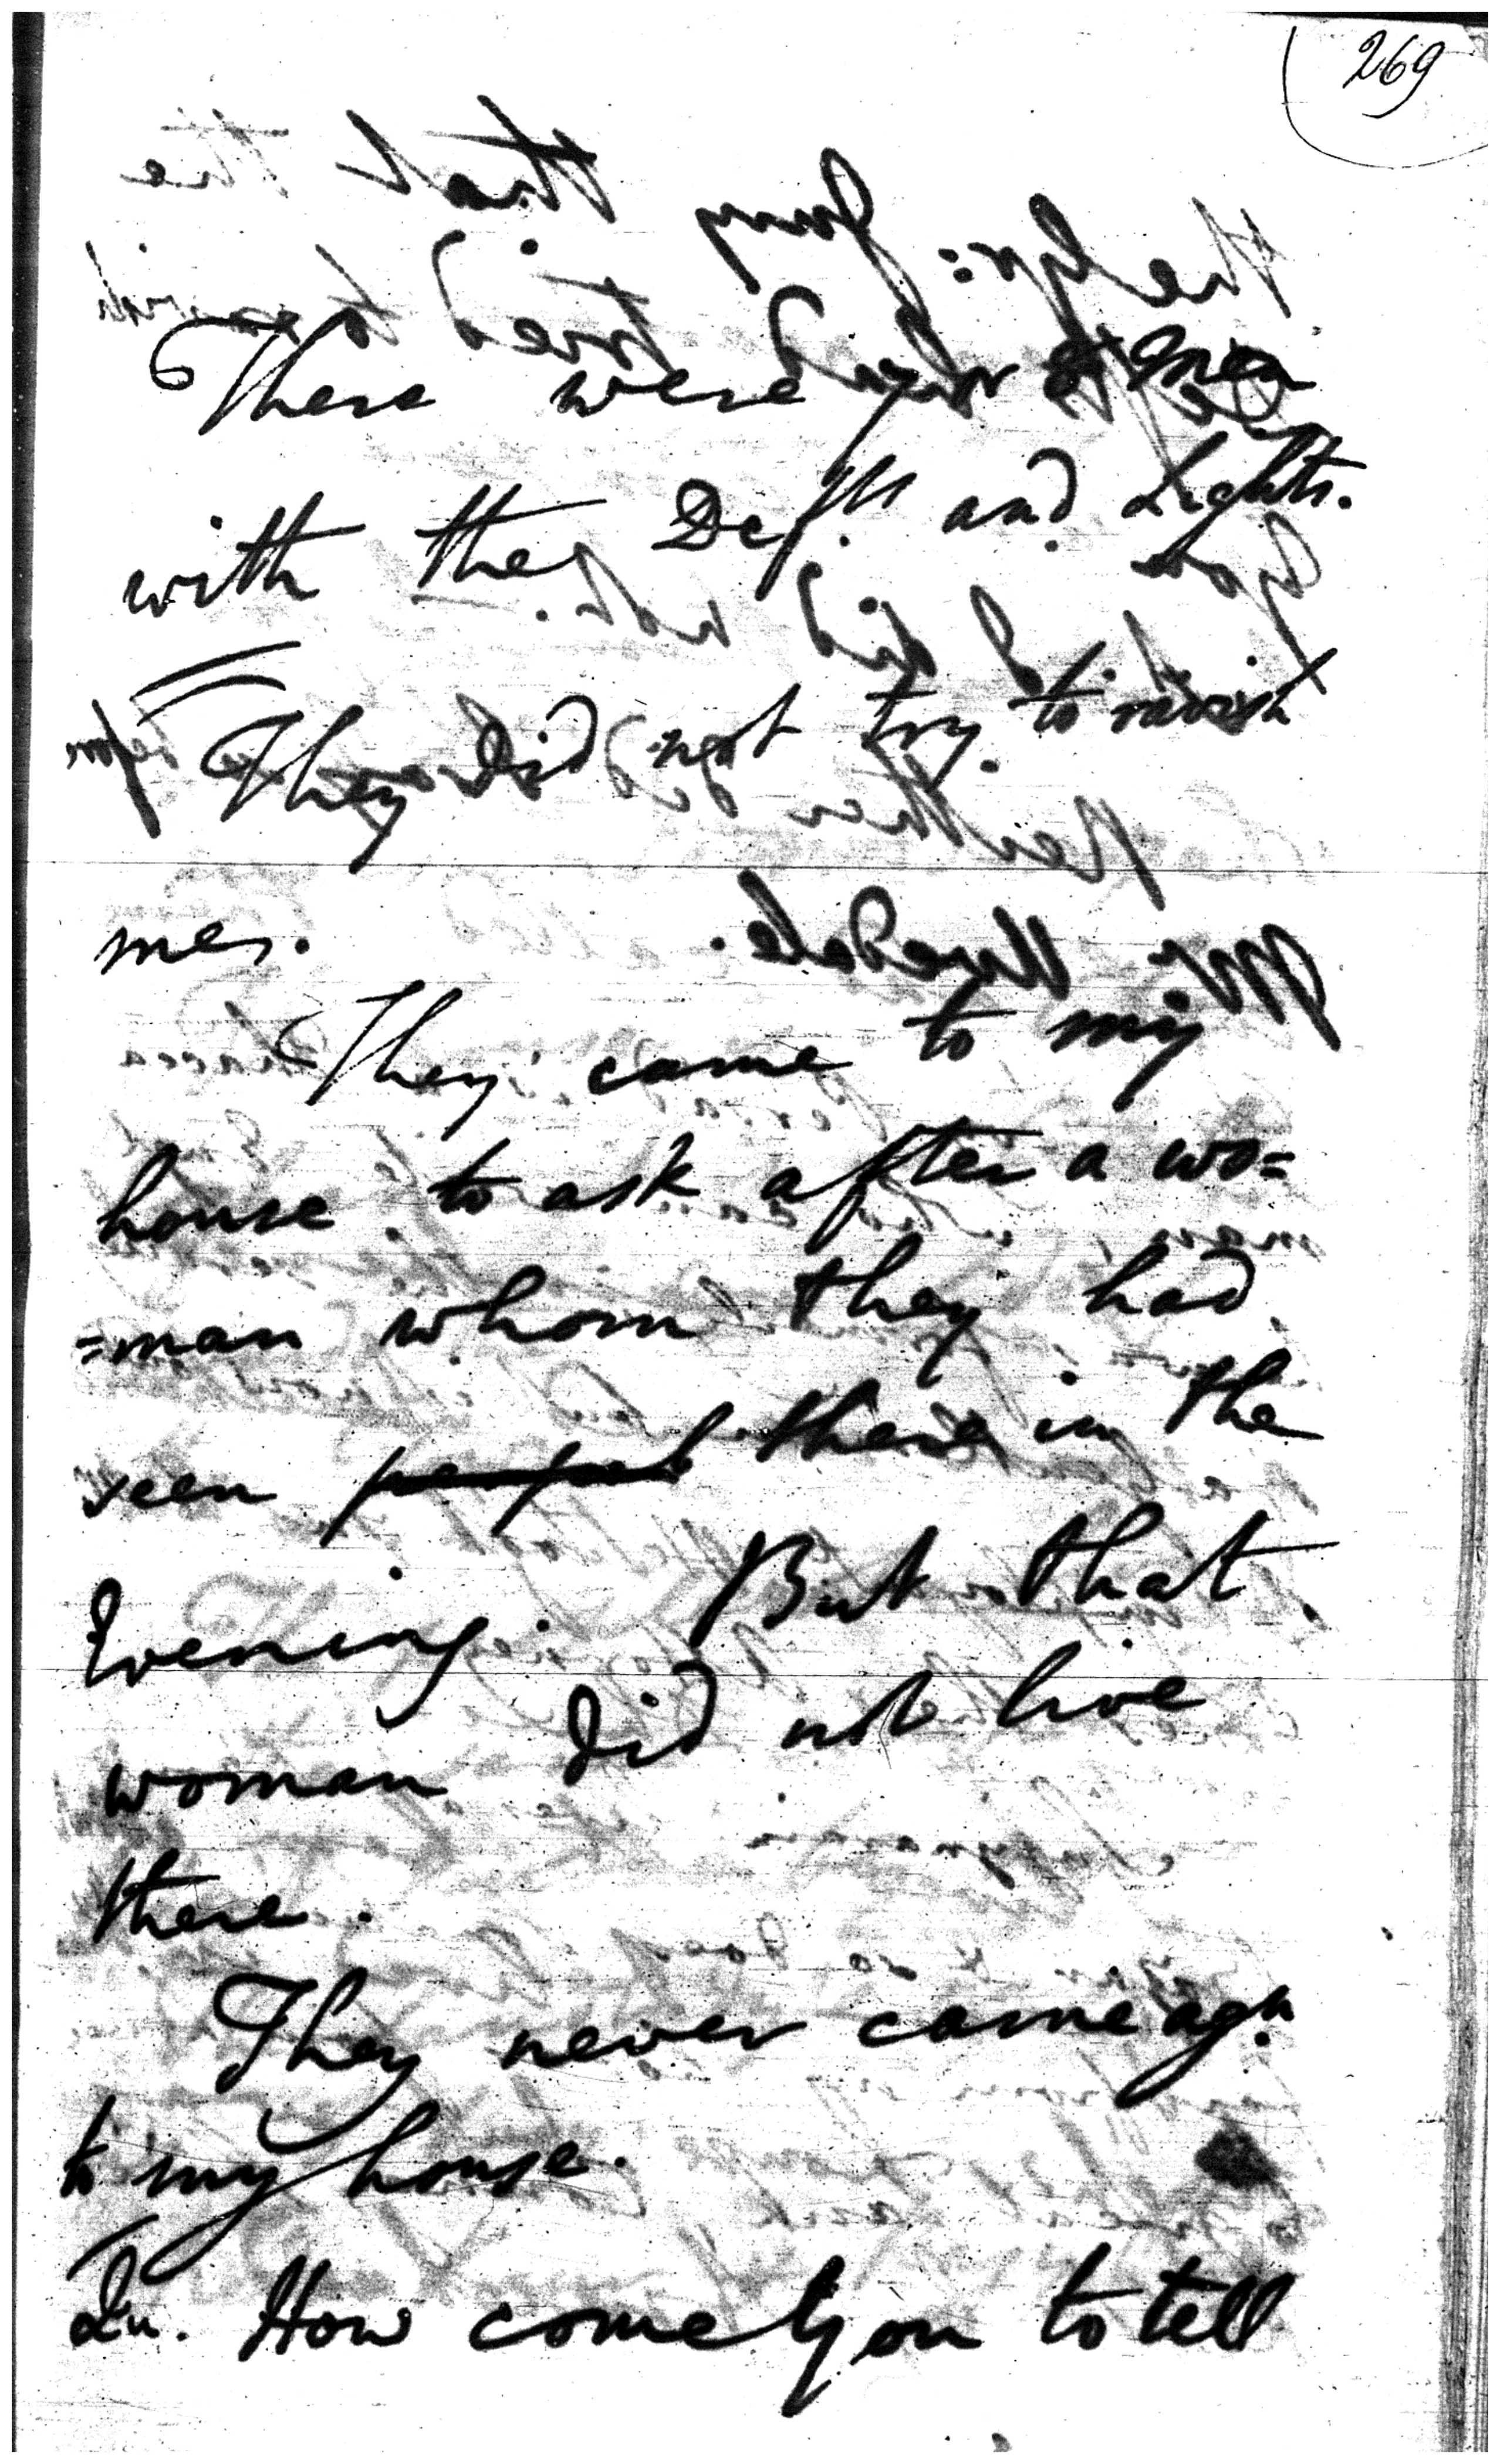 269
There were men
with the Def.ts and Lights.
They did not try to ravish
me.
They came to my
house to ask after a wo=
=man whom they had
seen there in the
Evening. But that
woman did not live
there.
They never came agn.
to my house.
Qu. How come you to tell